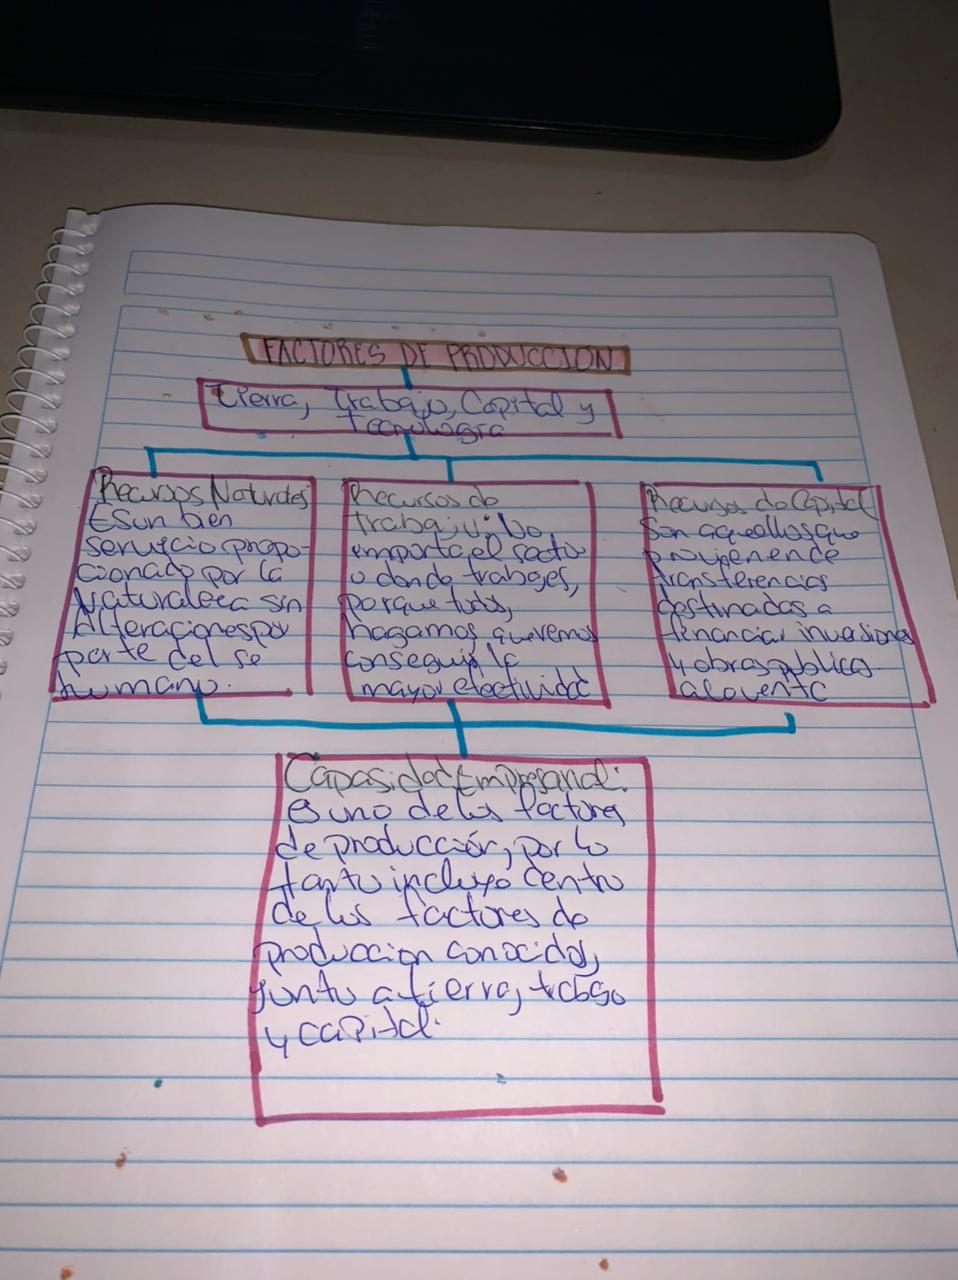 FACTORES DE PRODUCCION
Tierra, Trabajo, Capital y
Tecnología
Recursos Naturales
Es un bien
servicio propo-
cionado por la
Naturaleza sin
Alteraciones por
parte del se
humano.
Recursos de
trabajo: No
importa el secto
o donde trabajes,
porque todos,
hagamos, queremos
conseguir la
mayor efectividad
Recursos de Capital
Son aquellos que
provienen de
transferencias
destinadas a
financiar inversiones
y obras publicas
Capasidad Empresarial:
es uno de los factores
de producción, por lo
tanto incluyo dentro
de los factores de
produccion conocidos,
junto a tierra, trabajo
y capital.